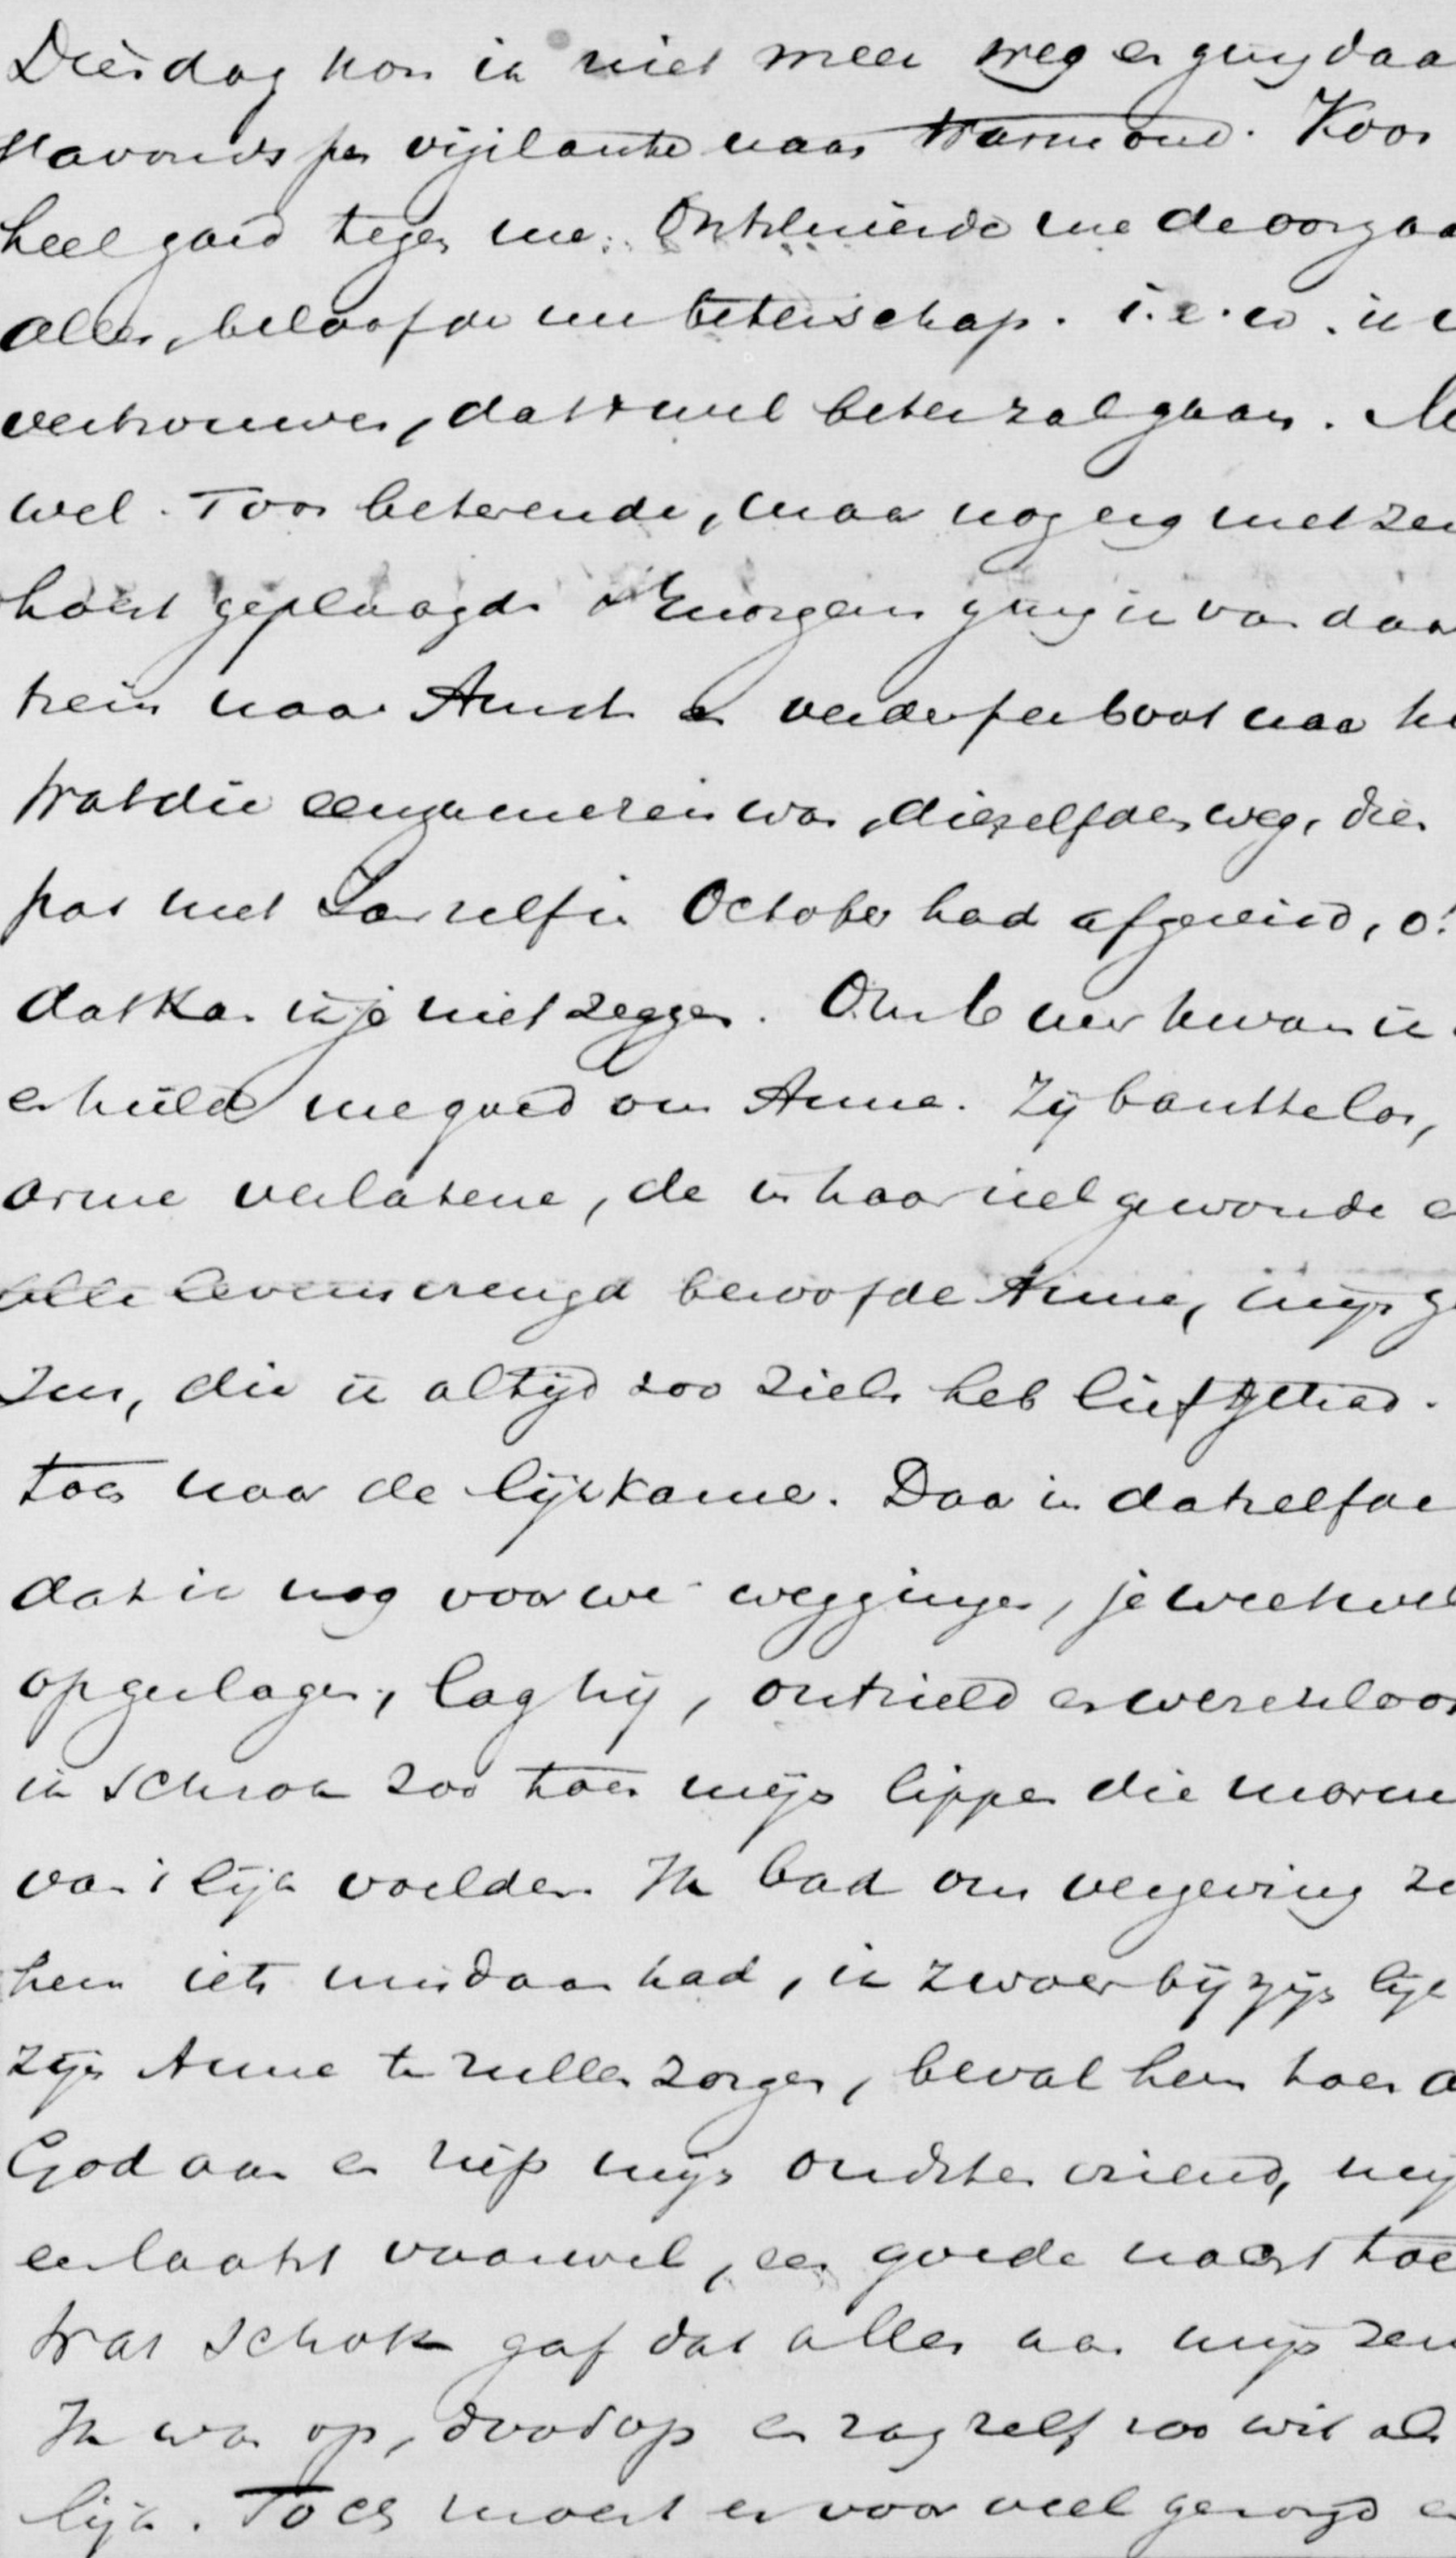 Diesdag kon ik niet meer weg en ging daa
s'avonds per vigilante naar Warmond. Koos
heel goed tegen me. Ontstuurde me de oorzaa
alles, beloofde me beterschap. i. e. w. ik
vertrouwen, dat 't wel beter zal gaan.
wel. Toos beterende, maar nog erg met zen
hoest geplaagd. 's Morgens ging ik van daar
trein naar Amst. en verder per boot naar h
Wat die eenzame reis was, diezelfden weg, dien
pas met Jan zelf in October had afgereisd, o!
dat kan ik je niet zeggen. Om 6 uur kwam ik
en hield me goed om Anna. Zij barstte los,
arme verlatene, de in haar ziel gewonde e
alle levensvreugd beroofde Anna, mijn g
zus, die ik altijd zoo ziels heb liefgehad.
toen naar de lijkkamer. Daar in datzelfde
dat ik nog voor we weggingen, je weet wel
opgeslagen, lag hij, ontzield en wezenloos
ik schrok zoo toen mijn lippen die marme
van 't lijk voelden. Ik bad om vergeving zo
hem iets misdaan had, ik zwoer bij zijn lijk
zijn Anna te zullen zorgen, beval hem toen a
God aan en riep mijn oudsten vriend, mij
een laatst vaarwel, een goede nacht toe
Wat schok gaf dat alles aan mijn zen
Ik was op, doodop en zag zelf zoo wit als
lijk. Toch moest er voor veel gezorgd e